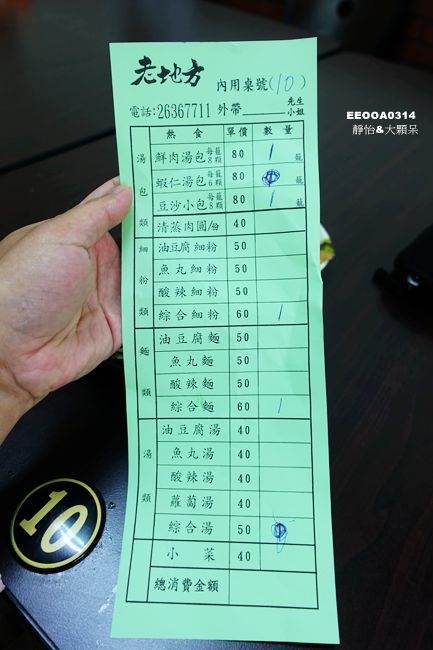 老地方 內用桌號(10)
電話:26367711 外帶____先生小姐
EEOOA0314
靜怡&大顆呆
熱食 單價 數量
湯包類
鮮肉湯包每籠8顆 80 1 籠
蝦仁湯包每籠6顆 80 籠
豆沙小包每籠8顆 80 1 籠
清蒸肉圓/份 40
細粉類
油豆腐細粉 50
魚丸細粉 50
酸辣細粉 50
綜合細粉 60 1
麵類
油豆腐麵 50
魚丸麵 50
酸辣麵 50
綜合麵 60 1
湯類
油豆腐湯 40
魚丸湯 40
酸辣湯 40
蘿蔔湯 40
綜合湯 50
小菜 40
總消費金額
10